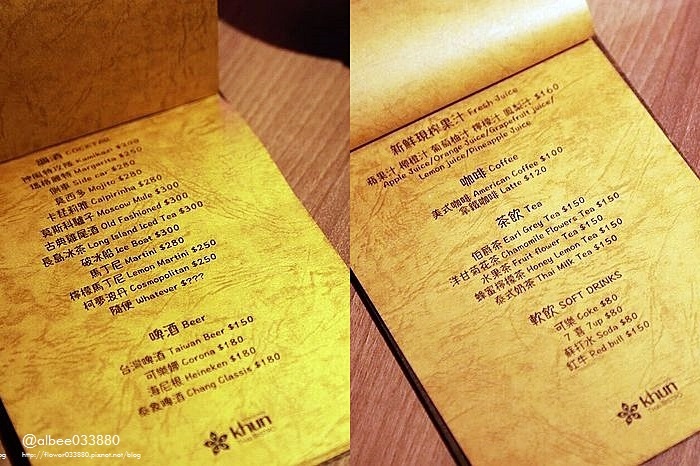 調酒 COCKTAIL
神風特攻隊 Kamikazi $200
瑪格麗特 Margarita $250
側車 Side car $280
莫西多 Mojito $280
卡琵莉雅 Caipirinha $280
莫斯科騾子 Moscow Mule $300
古典雞尾酒 Old Fashioned $300
長島冰茶 Long Island Iced Tea $300
破冰船 Ice Boat $300
馬丁尼 Martini $280
檸檬馬丁尼 Lemon Martini $250
柯夢波丹 Cosmopolitan $250
隨便 Whatever $???
啤酒 Beer
台灣啤酒 Taiwan Beer $150
可樂娜 Corona $180
海尼根 Heineken $180
泰象啤酒 Chang Classic $180
khun
@albee033880
http://flower033880.pixnet.net/blog
新鮮現榨果汁 Fresh Juice
蘋果汁 柳橙汁 葡萄柚汁 檸檬汁 鳳梨汁 $160
Apple Juice/Orange Juice/Grapefruit juice/
Lemon juice/Pineapple Juice
咖啡 Coffee
美式咖啡 American Coffee $100
拿鐵咖啡 Latte $120
茶飲 Tea
伯爵茶 Earl Grey Tea $150
洋甘菊花茶 Chamomile Flowers Tea $150
水果茶 Fruit flower Tea $150
蜂蜜檸檬茶 Honey Lemon Tea $150
泰式奶茶 Thai Milk Tea $150
軟飲 SOFT DRINKS
可樂 Coke $80
7 喜 7up $80
蘇打水 Soda $80
紅牛 Red bull $150
khun